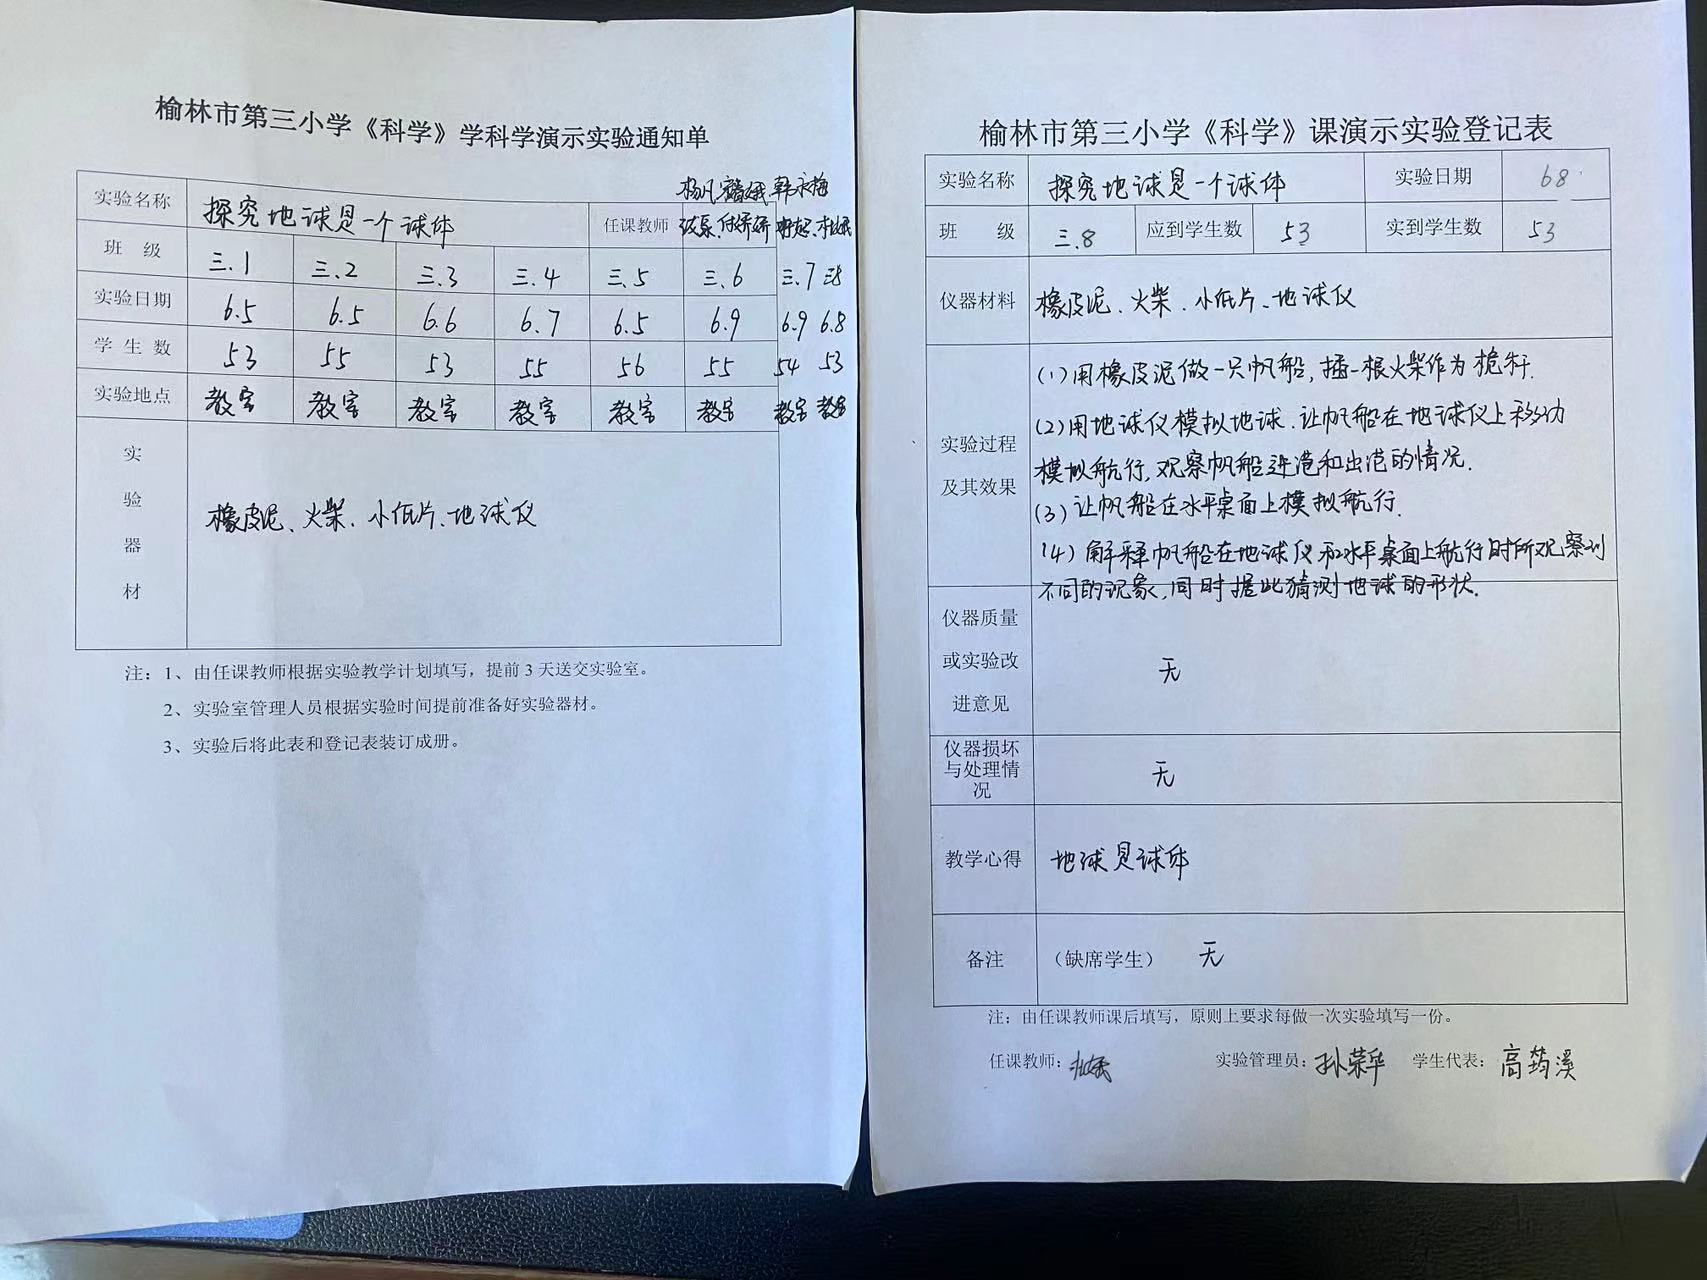 榆林市第三小学《科学》学科学演示实验通知单
实验名称 探究地球是一个球体 任课教师
班 级 三.1 三.2 三.3 三.4 三.5 三.6 三.7 三.8
实验日期 6.5 6.5 6.6 6.7 6.5 6.9 6.9 6.8
学 生 数 53 55 53 55 56 55 54 53
实验地点 教室 教室 教室 教室 教室 教室 教室 教室
实
验
器
材
橡皮泥、火柴、小纸片、地球仪
注：1、由任课教师根据实验教学计划填写，提前 3 天送交实验室。
2、实验室管理人员根据实验时间提前准备好实验器材。
3、实验后将此表和登记表装订成册。
榆林市第三小学《科学》课演示实验登记表
实验名称 探究地球是一个球体 实验日期 6.8
班 级 三.8 应到学生数 53 实到学生数 53
仪器材料 橡皮泥、火柴、小纸片、地球仪
实验过程
及其效果
(1)用橡皮泥做一只帆船,插一根火柴作为桅杆.
(2)用地球仪模拟地球.让帆船在地球仪上移动
模拟航行,观察帆船进港和出港的情况.
(3)让帆船在水平桌面上模拟航行.
(4)解释帆船在地球仪和水平桌面上航行时所观察到
不同的现象,同时据此猜测地球的形状.
仪器质量
或实验改
进意见
无
仪器损坏
与处理情
况
无
教学心得 地球是球体
备注 （缺席学生） 无
注：由任课教师课后填写，原则上要求每做一次实验填写一份。
任课教师： 实验管理员：孙荣华 学生代表：高筠溪